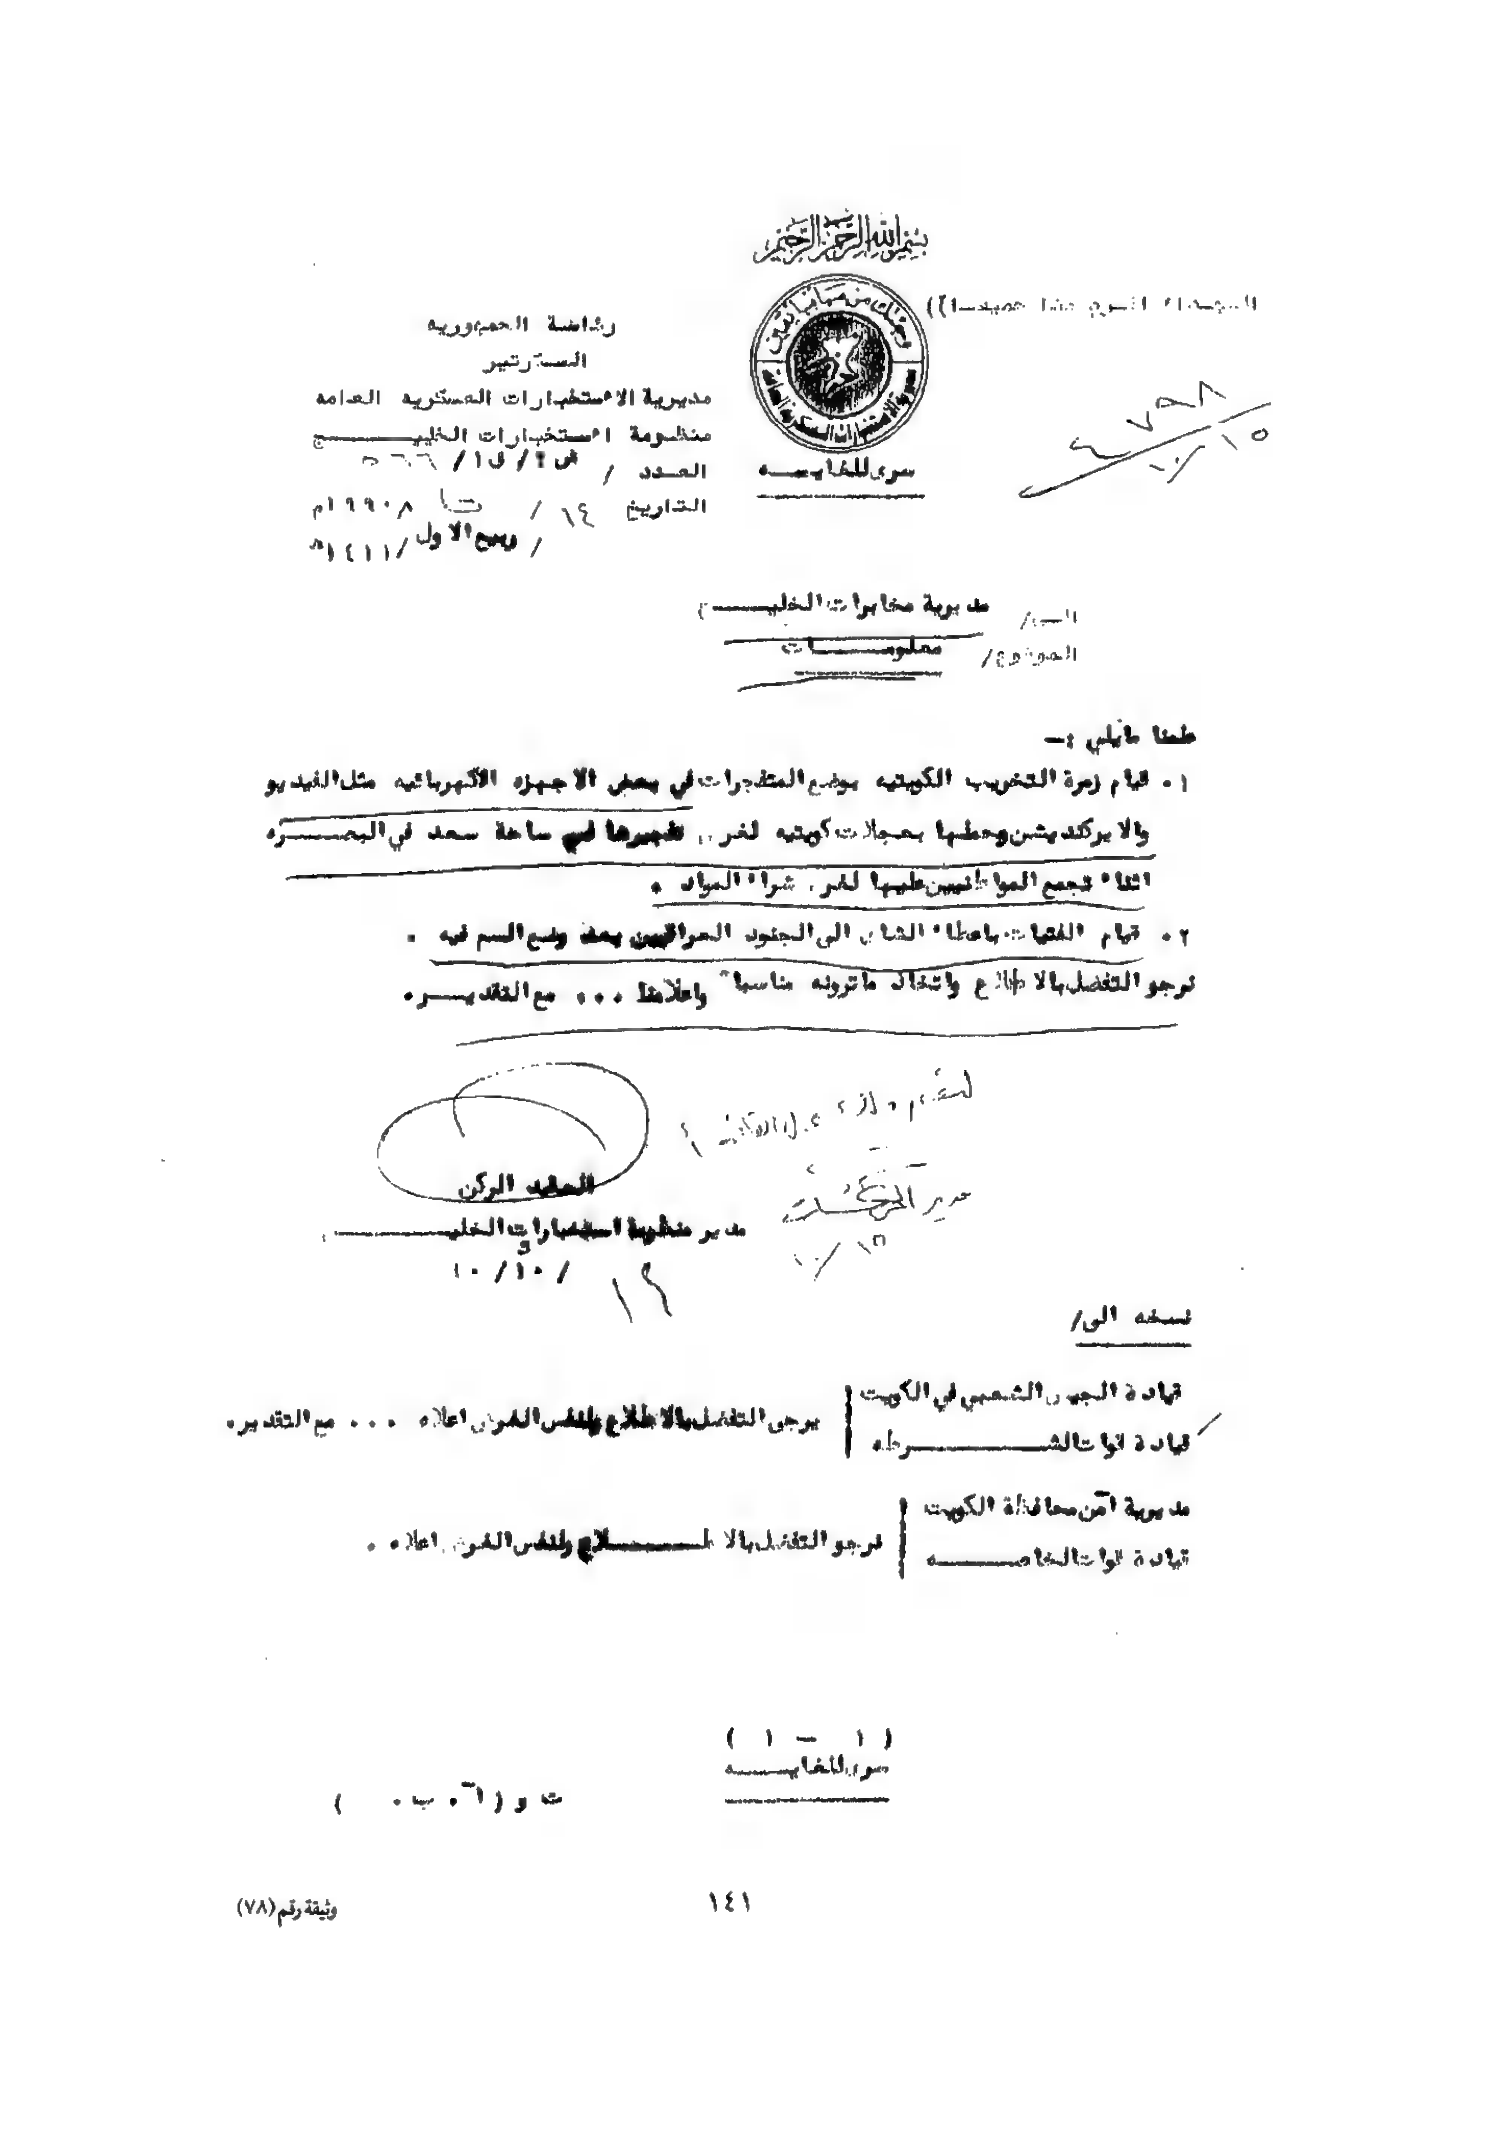 بسم الله الرحمن الرحيم
رئاسة الجمهورية
السكرتير
مديرية الاستخبارات العسكرية العامه
منظومة استخبارات الخليـــــج
العدد / ش٢/ق١/ ٥٦٦
التاريخ ١٤ / ت١ ١٩٩٠م
/ ربيع الاول /١٤١١هـ
مديرية الاستخبارات العسكرية العامة
سري للغايـــه
١٥/١٠
الى/ مديرية مخابرات الخليـــج
الموضوع/ معلومـــات
علمنا مايلي :ـ
١٠ قيام زمرة التخريب الكويتيه بوضع المتفجرات في بعض الاجهزه الكهربائيه مثل الفيديو
والايركنديشن وحطها بعجلات كويتيه لغرض تفجيرها في ساحة سعد في البصـــره
اثناء تجمع المواطنيين عليها لغرض شراء المواد .
٢٠ قيام الفتيات باعطاء الشاي الى الجنود العراقيين بعد وضع السم فيه .
نرجو التفضل بالاطلاع واتخاذ ماترونه مناسبا" واعلامنا ... مع التقديـــر.
مدير
١٦/١٠
العقيد الركن
مدير منظومة استخبارات الخليـــج
١٤ / ١٠/ ١٠
نسخه الى/
قيادة الجيش الشعبي في الكويت
قيادة قوات الشـــرطه
يرجى التفضل بالاطلاع ولنفس الغرض اعلاه ... مع التقدير.
مديرية امن محافظة الكويت
قيادة قوات الخاصـــه
نرجو التفضل بالاطـــلاع ولنفس الغرض اعلاه .
( ١ ـ ١ )
سري للغايـــه
ت و (أ. ب. )
١٤١
وثيقة رقم (٧٨)